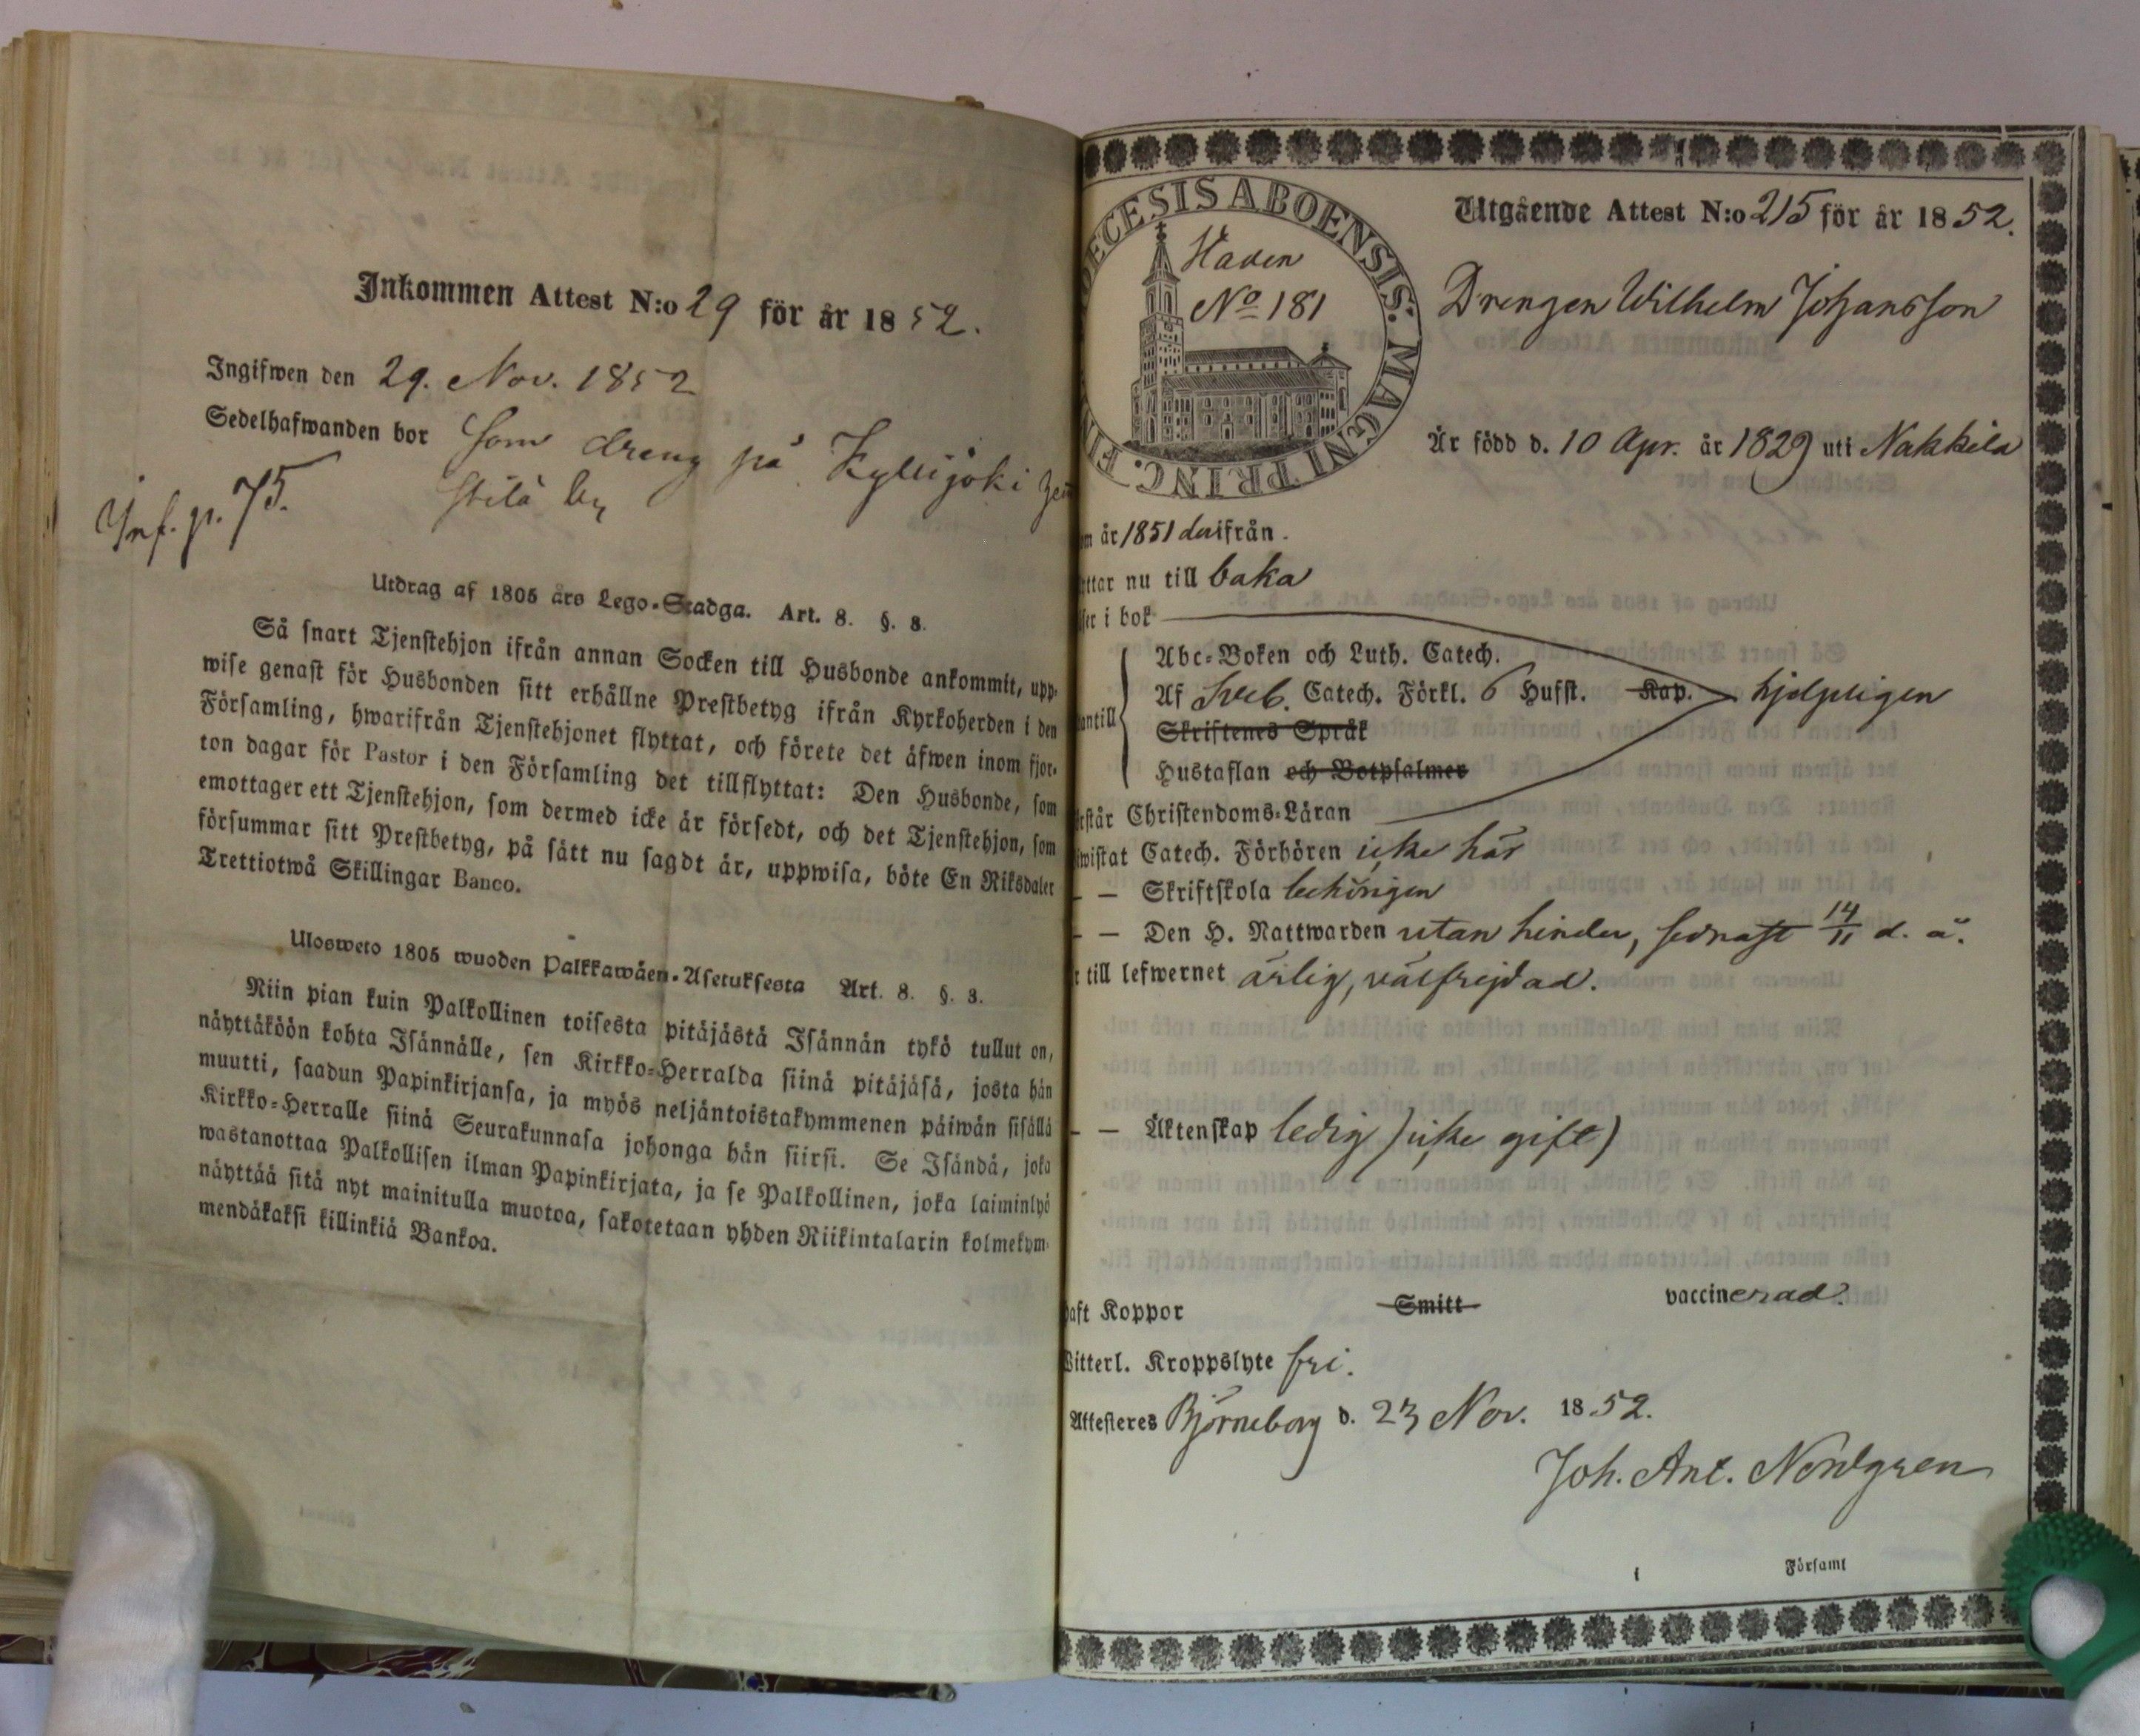 Inkommen Attest N:o 29 för år 1852.
Ingifwen den 29. Nov. 1852
Sedelhafwanden bor som dreng på Kyllijoki
by
Inf. p. 75.
Utdrag af 1805 års Lego-Stadga. Art. 8. §. 8.
Så snart Tjenstehjon ifrån annan Socken till Husbonde ankommit, upp-
wise genast för Husbonden sitt erhållne Prestbetyg ifrån Kyrkoherden i den
Församling, hwarifrån Tjenstehjonet flyttat, och förete det äfwen inom fjor-
ton dagar för Pastor i den Församling det tillflyttat: Den Husbonde, som
emottager ett Tjenstehjon, som dermed icke är försedt, och det Tjenstehjon, som
försummar sitt Prestbetyg, på sätt nu sagdt är, uppwisa, böte En Riksdaler
Trettiotwå Skillingar Banco.
Ulosweto 1805 wuoden Palkkawäen-Asetuksesta Art. 8. §. 8.
Niin pian kuin Palkollinen toisesta pitäjästä Isännän tykö tullut on,
näyttäköön kohta Isännälle, sen Kirkko-Herralda siinä pitäjäsä, josta hän
muutti, saadun Papinkirjansa, ja myös neljäntoistakymmenen päiwän sisällä
Kirkko-Herralle siinä Seurakunnasa johonga hän siirsi. Se Isändä, joka
wastanottaa Palkollisen ilman Papinkirjata, ja se Palkollinen, joka laiminlyö
näyttää sitä nyt mainitulla muotoa, sakotetaan yhden Riikintalarin kolmekym-
mendäkaksi killinkiä Bankoa.
DIECESIS ABOENSIS. MAGNI PRINC. FIN
Haven
No 181
Utgående Attest N:o 215 för år 1852.
Drengen Wilhelm Johansson
Är född d. 10 Apr. år 1829 uti Nakkila
år 1851 derifrån.
nu till baka
i bok
Abc-Boken och Luth. Catech.
Af Sveb. Catech. Förkl. 6 Hufst. Kap. hjelpligen
Skriftenes Språk
Hustaflan och Botpsalmer
Christendoms-Läran
Catech. Förhören icke här
— — Skriftskola behörigen
— — Den H. Nattwarden utan hinder, sednast 14/11 d. å.
till lefwernet ärlig, välfrejdad.
— — Äktenskap ledig (icke gift)
Koppor Smitt vaccinerad.
Witterl. Kroppslyte fri.
Attesteres Björneborg d. 23 Nov. 1852.
Joh. Ant. Nordgren
i Församl